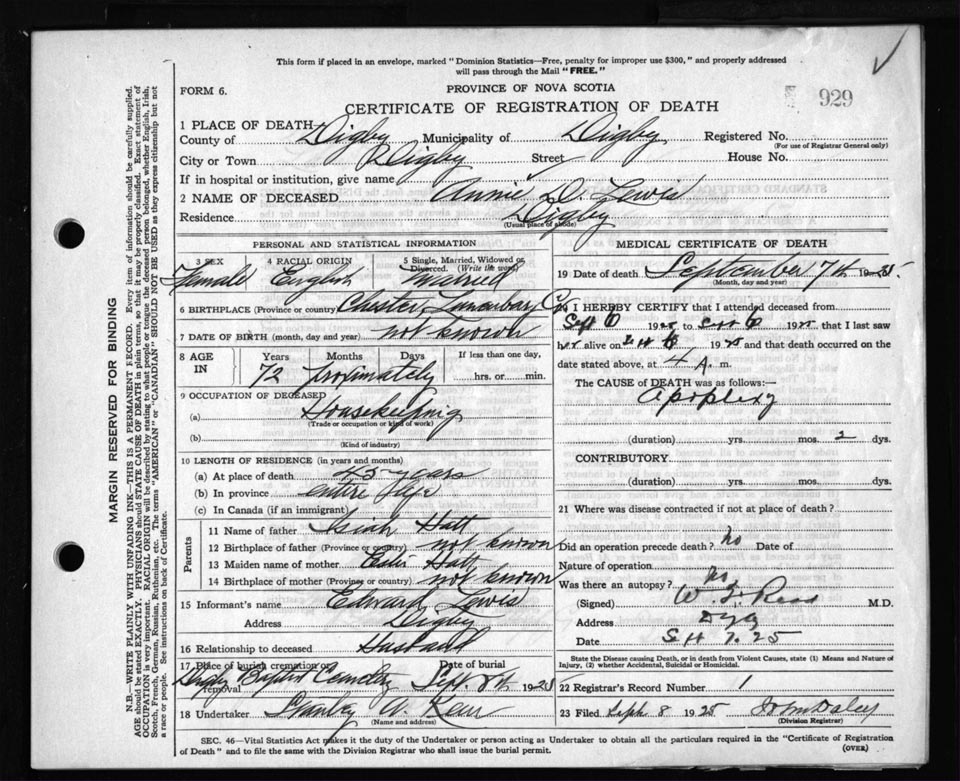 This form if placed in an envelope, marked "Dominion Statistics—Free, penalty for improper use $300," and properly addressed
will pass through the Mail "FREE."
FORM 6.
PROVINCE OF NOVA SCOTIA
929
CERTIFICATE OF REGISTRATION OF DEATH
1 PLACE OF DEATH—
County of Digby Municipality of Digby Registered No.
(For use of Registrar General only)
City or Town Digby Street House No.
If in hospital or institution, give name
2 NAME OF DECEASED Annie D. Lewis
Residence Digby
(Usual place of abode)
PERSONAL AND STATISTICAL INFORMATION
3 SEX 4 RACIAL ORIGIN 5 Single, Married, Widowed or
Divorced. (Write the word)
Female English Married
6 BIRTHPLACE (Province or country) Chester, Lunenburg Co
7 DATE OF BIRTH (month, day and year) not known
8 AGE IN Years Months Days If less than one day,
72 Proximately hrs. or min.
9 OCCUPATION OF DECEASED
(a) Housekeeping
(Trade or occupation or kind of work)
(b)
(Kind of industry)
10 LENGTH OF RESIDENCE (in years and months)
(a) At place of death 45 years
(b) In province entire life
(c) In Canada (if an immigrant)
Parents
11 Name of father Isiah Hatt
12 Birthplace of father (Province or country) not known
13 Maiden name of mother Hatt
14 Birthplace of mother (Province or country) not known
15 Informant's name Edward Lewis
Address Digby
16 Relationship to deceased Husband
17 Place of burial cremation or removal Digby Baptist Cemetery Date of burial Sept. 8th 1925
18 Undertaker Stanley A.
(Name and address)
MEDICAL CERTIFICATE OF DEATH
19 Date of death September 7th 1925.
(Month, day and year)
20 I HEREBY CERTIFY that I attended deceased from
Sept 6 1925 to Sept 6 1925 that I last saw
her alive on Sept 6 1925 and that death occurred on the
date stated above, at 4 A. m.
The CAUSE of DEATH was as follows:—
Apoplexy
(duration) yrs. mos. 2 dys.
CONTRIBUTORY.
(duration) yrs. mos. dys.
21 Where was disease contracted if not at place of death?
Did an operation precede death? no Date of
Nature of operation
Was there an autopsy? no
(Signed) W. M.D.
Address Digby
Date Sept 7. 25
State the Disease causing Death, or in death from Violent Causes, state (1) Means and Nature of
Injury, (2) whether Accidental, Suicidal or Homicidal.
22 Registrar's Record Number 1
23 Filed Sept 8 1925 John Daley
(Division Registrar)
SEC. 46—Vital Statistics Act makes it the duty of the Undertaker or person acting as Undertaker to obtain all the particulars required in the "Certificate of Registration
of Death" and to file the same with the Division Registrar who shall issue the burial permit.
(OVER)
MARGIN RESERVED FOR BINDING
N.B.—WRITE PLAINLY WITH UNFADING INK—THIS IS A PERMANENT RECORD. Every item of information should be carefully supplied.
AGE should be stated EXACTLY. PHYSICIANS should STATE CAUSE OF DEATH in plain terms, so that it may be properly classified. Exact statement of
OCCUPATION is very important. RACIAL ORIGIN will be described by stating to what people or tongue the deceased person belonged, whether English, Irish,
Scotch, French, German, Russian, Ruthenian, etc. The terms "AMERICAN" or "CANADIAN" SHOULD NOT BE USED as they express citizenship but not
a race or people. See instructions on back of Certificate.